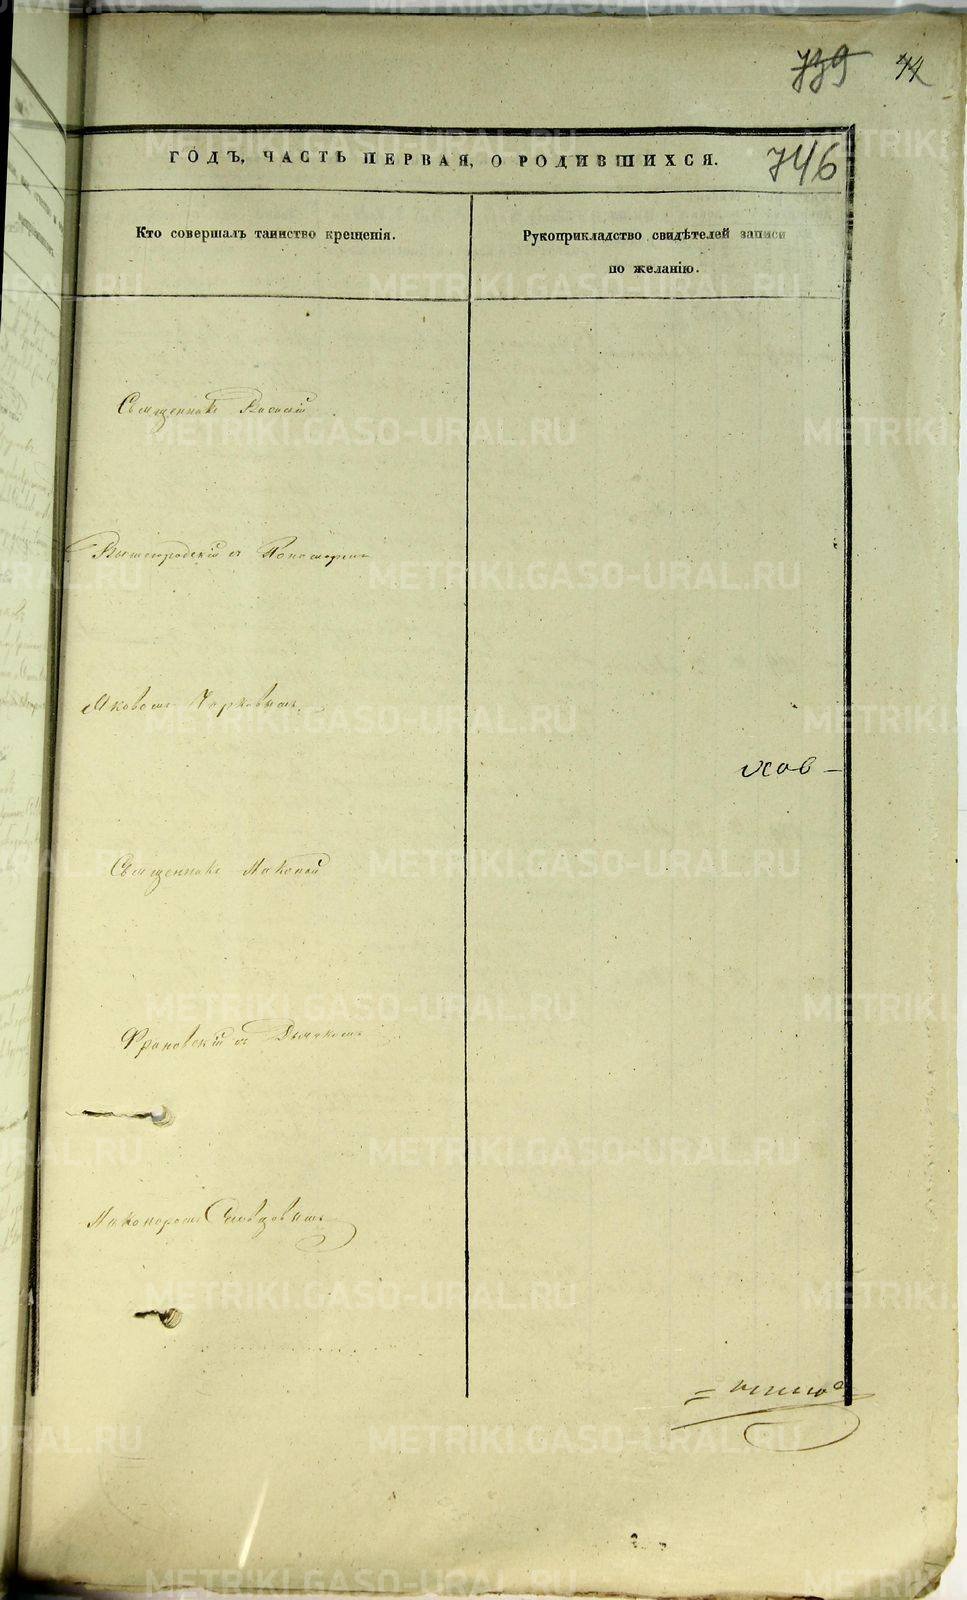 739 44
ГОДЪ, ЧАСТЬ ПЕРВАЯ, О РОДИВШИХСЯ. 746
Кто совершалъ таинство крещенія.
Рукоприкладство свидѣтелей записи
по желанію.
Священникъ Василій
Вышегородскій съ Пономаремъ
Яковомъ Чирковымъ.
Священникъ
Франовскій съ Дьячкомъ
Никоноромъ Словцовымъ
METRIKI.GASO-URAL.RU